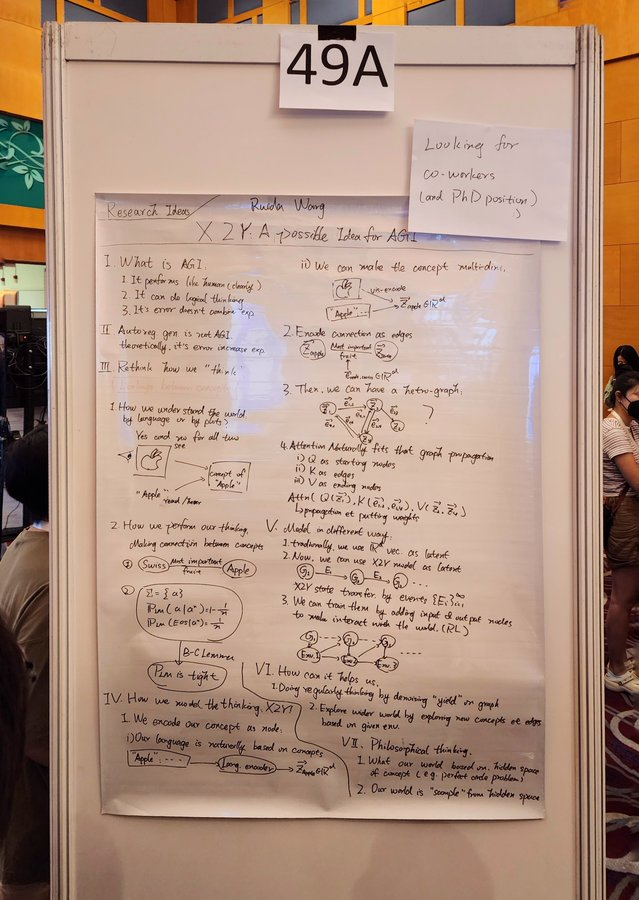 49A
Looking for
co-workers
(and PhD position)
Research Ideas
Ruida Wang
X2Y: A possible Idea for AGI
I. What is AGI:
1. It performs like human (clearly)
2. It can do logical thinking
3. It's error doesn't combine exp.
II Autoreg. gen. is not AGI.
theoretically, it's error increase exp.
III. Rethink how we "think"
1. How we understand the world.
by language or by plots?
Yes and no for all two
see
concept of
"Apple"
"Apple"
read/hear
2. How we perform our thinking.
Making connection between concepts
① Swiss Most important fruit Apple
②
Σ = {a}
B-C Lemma
PLM is tight
IV. How we model the thinking, X2Y?
1. We encode our concept as node:
i) Our language is naturally based on concepts
"Apple": ---- Lang. encoder Z⃗Apple∈ℝᵈ
ii) We can make the concept multi-dim.
vis-encode
"Apple":-- Z⃗apple∈ℝᵈ
2. Encode connection as edges
Z⃗apple Most important fruit Z⃗Swiss
3. Then, we can have a hetro-graph:
?
4. Attention Naturally fits that graph propagation
i) Q as starting nodes
ii) K as edges
iii) V as ending nodes
↳ propagation et putting weights
V. Model in different way:
1. traditionally, we use ℝᵈ vec. as latent
2. Now, we can use X2Y model as latent
G₁ E₁ G₂ E₂ G₃ ...
X2Y state transfer by events {Eᵢ}
3. We can train them by adding input & output nodes
to make interact with the world. (RL)
G₁ G₂ G₃
Env.1 Env.2 Env.3
VI. How can it helps us.
1. Doing regularly thinking by denoising "yield" on graph
2. Explore wider world by exploring new concepts et edges
based on given env.
VII. Philosorphical thinking.
1. What our world based on: hidden space
of concept (e.g. perfect circle problem)
2. Our world is "sample" from hidden space